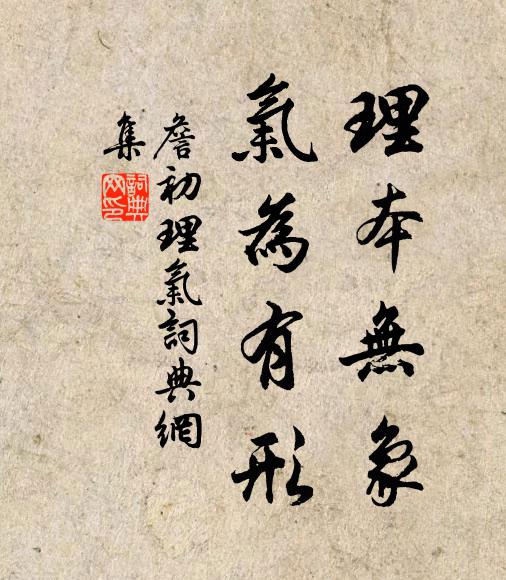 理本無象
氣為有形
詹初理氣詞典網
集
詞典
网印